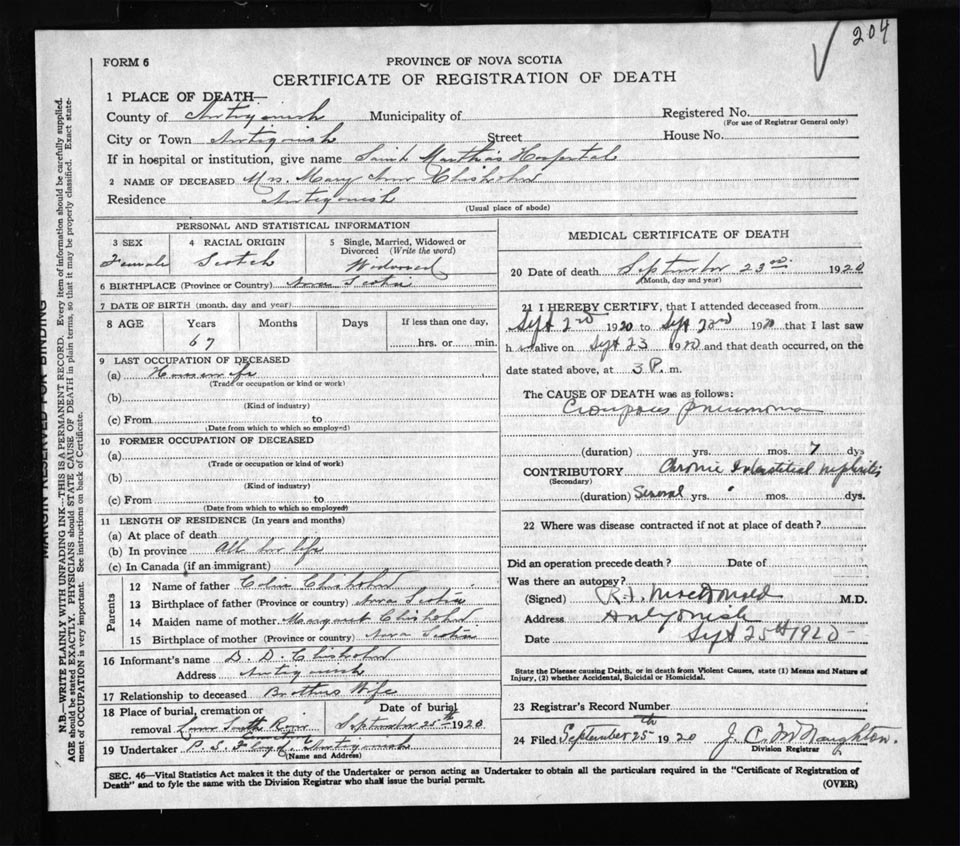 204
FORM 6
PROVINCE OF NOVA SCOTIA
CERTIFICATE OF REGISTRATION OF DEATH
1 PLACE OF DEATH—
County of Antigonish Municipality of Registered No.
(For use of Registrar General only)
City or Town Antigonish Street House No.
If in hospital or institution, give name Saint Martha's Hospital
2 NAME OF DECEASED Mrs. Mary Ann Chisholm
Residence Antigonish
(Usual place of abode)
PERSONAL AND STATISTICAL INFORMATION
3 SEX 4 RACIAL ORIGIN 5 Single, Married, Widowed or Divorced (Write the word)
Female Scotch Widowed
6 BIRTHPLACE (Province or Country) Nova Scotia
7 DATE OF BIRTH (month, day and year)
8 AGE Years Months Days If less than one day,
67 hrs. or min.
9 LAST OCCUPATION OF DECEASED
(a) Housewife
(Trade or occupation or kind or work)
(b)
(Kind of industry)
(c) From to
(Date from which to which so employed)
10 FORMER OCCUPATION OF DECEASED
(a)
(Trade or occupation or kind of work)
(b)
(Kind of industry)
(c) From to
(Date from which to which so employed)
11 LENGTH OF RESIDENCE (In years and months)
(a) At place of death
(b) In province All her life
(c) In Canada (if an immigrant)
Parents
12 Name of father Colin Chisholm
13 Birthplace of father (Province or country) Nova Scotia
14 Maiden name of mother Margaret Chisholm
15 Birthplace of mother (Province or country) Nova Scotia
16 Informant's name D. D. Chisholm
Address Antigonish
17 Relationship to deceased Brothers Wife
18 Place of burial, cremation or removal Date of burial
Lower South River September 25th 1920
Cemetery
19 Undertaker Antigonish
(Name and Address)
MEDICAL CERTIFICATE OF DEATH
20 Date of death September 23rd 1920
(Month, day and year)
21 I HEREBY CERTIFY, that I attended deceased from
Sept 2nd 1920 to Sept 22nd 1920 that I last saw
h alive on Sept 23 1920 and that death occurred, on the
date stated above, at 3 P. m.
The CAUSE OF DEATH was as follows:
Croupous pneumonia
(duration) yrs. mos. 7 dys
CONTRIBUTORY Chronic Interstitial Nephritis
(Secondary)
(duration) Several yrs. mos. dys.
22 Where was disease contracted if not at place of death?
Did an operation precede death? Date of
Was there an autopsy?
(Signed) R. F. MacDonald M.D.
Address Antigonish
Date Sept 25th 1920
State the Disease causing Death, or in death from Violent Causes, state (1) Means and Nature of
Injury, (2) whether Accidental, Suicidal or Homicidal.
23 Registrar's Record Number
24 Filed September 25th 1920 J. C. McNaughton.
Division Registrar
SEC. 46—Vital Statistics Act makes it the duty of the Undertaker or person acting as Undertaker to obtain all the particulars required in the "Certificate of Registration of
Death" and to fyle the same with the Division Registrar who shall issue the burial permit.
(OVER)
MARGIN RESERVED FOR BINDING
N.B.—WRITE PLAINLY WITH UNFADING INK—THIS IS A PERMANENT RECORD. Every item of information should be carefully supplied.
AGE should be stated EXACTLY. PHYSICIANS should STATE CAUSE OF DEATH in plain terms, so that it may be properly classified. Exact state-
ment of OCCUPATION is very important. See instructions on back of Certificate.